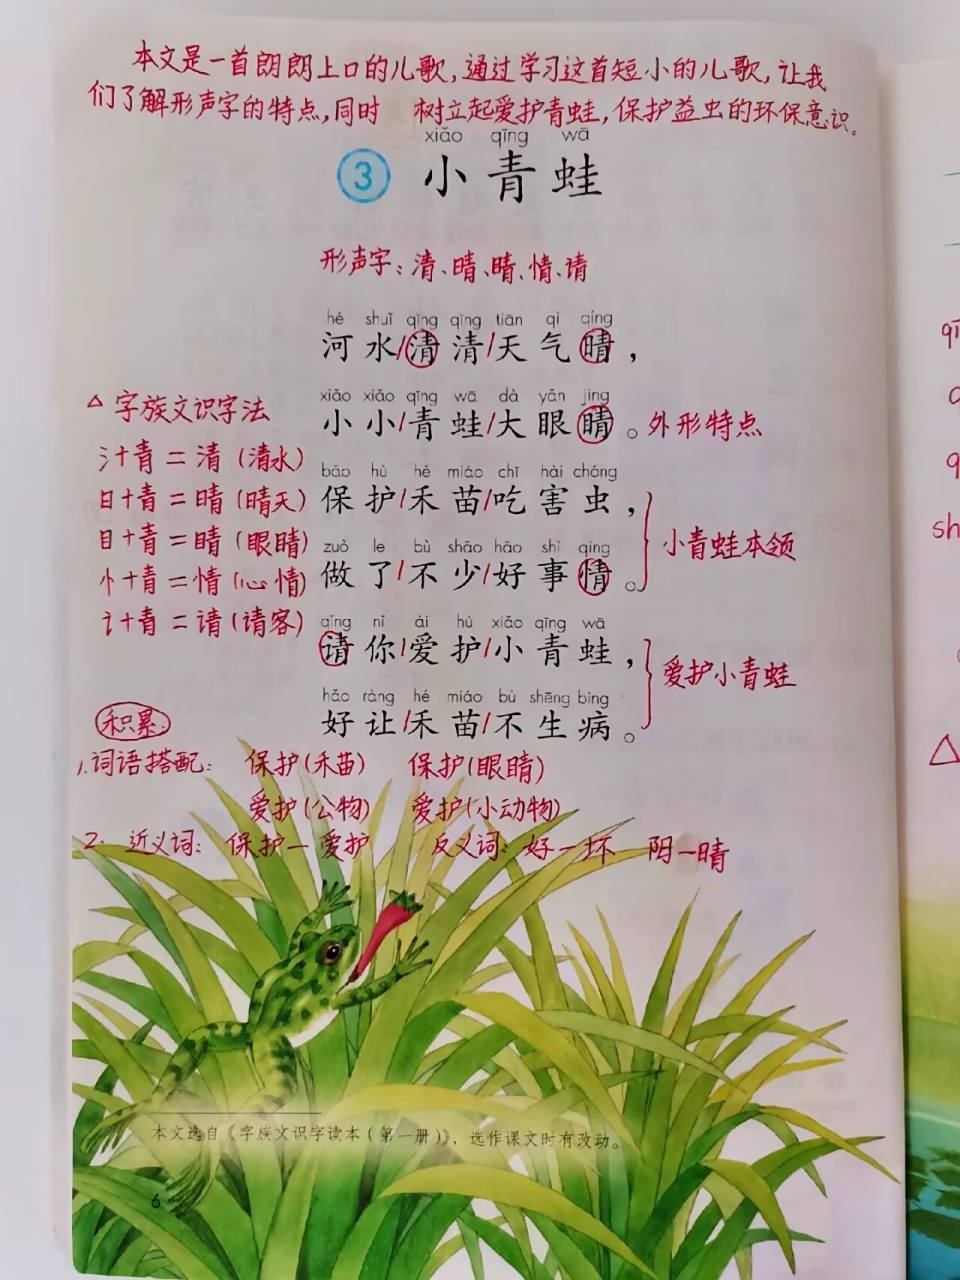 本文是一首朗朗上口的儿歌,通过学习这首短小的儿歌,让我
们了解形声字的特点,同时 树立起爱护青蛙,保护益虫的环保意识。
xiǎo qīng wā
3 小青蛙
形声字:清、晴、睛、情、请
hé shuǐ qīng qīng tiān qì qíng
河水/清清/天气晴,
xiǎo xiǎo qīng wā dà yǎn jīng
小小/青蛙/大眼睛。 外形特点
bǎo hù hé miáo chī hài chóng
保护/禾苗/吃害虫,
zuò le bù shǎo hǎo shì qing
做了/不少/好事情。
小青蛙本领
qǐng nǐ ài hù xiǎo qīng wā
请你/爱护/小青蛙,
hǎo ràng hé miáo bù shēng bìng
好让/禾苗/不生病。
爱护小青蛙
△ 字族文识字法
氵+青=清(清水)
日+青=晴(晴天)
目+青=睛(眼睛)
忄+青=情(心情)
讠+青=请(请客)
积累
1.词语搭配: 保护(禾苗) 保护(眼睛)
爱护(公物) 爱护(小动物)
2. 近义词: 保护—爱护 反义词: 好—坏 阴—晴
本文选自《字族文识字读本(第一册)》,选作课文时有改动。
6
sh
△